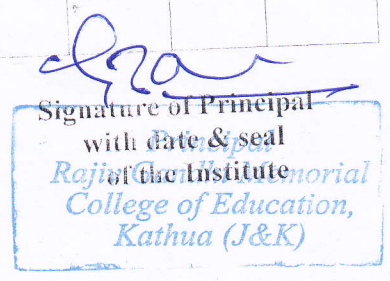 Signature of Principal
with date & seal
of the Institute
Principal
Rajiv Gandhi Memorial
College of Education,
Kathua (J&K)